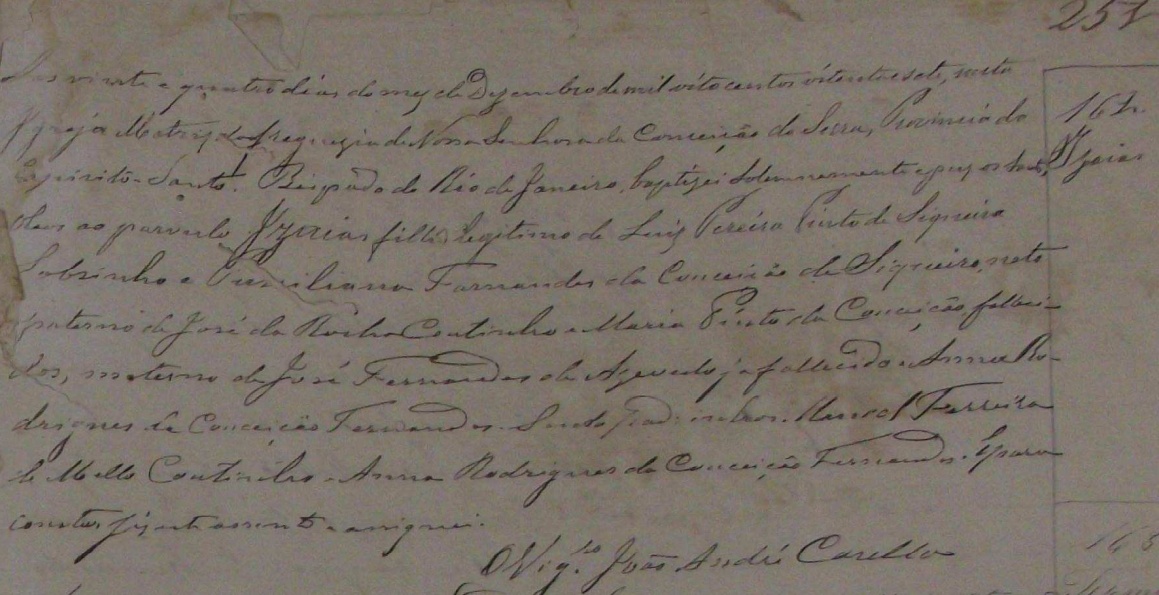 257
Aos vinte e quatro dias do mez de Dezembro de mil oito centos oitenta e sete, nesta
Igreja Matriz da freguezia de Nossa Senhora da Conceição da Serra, Provincia do
Espirito-Santo. Bispado do Rio de Janeiro, baptizei solemnemente e puz os Santos
Oleos ao parvulo Izaias filho legitimo de Luiz Pereira Pinto de Siqueira
Sobrinho e Fernandes da Conceição de Siqueira, neto
paterno de José da Rocha Coutinho e Maria Pinto da Conceição falleci-
dos, materno de José Fernandes de Azevedo já fallecido e Anna Ro-
drigues da Conceição Fernandes. Sendo padrinhos. Manoel Ferreira
de Mello Coutinho e Anna Rodrigues da Conceição Fernandes. E para
constar fiz este assento e assignei.
O Vig.ro João André Casella
Izaias